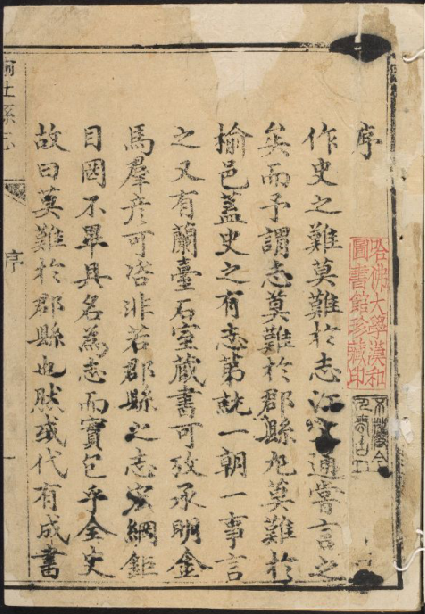 序
作史之難莫難於志江　通嘗言之
矣而予謂志莫難於郡縣尤莫難於
榆邑蓋史之有志第就一朝一事言
之又有蘭臺石室藏書可攷承明金
馬羣彦可咨非若郡縣之志宏綱鉅
目罔不畢具名為志而實包乎全史
故曰莫難於郡縣也肰或代有成書
榆社縣志
序
一
哈佛大學漢和
圖書館珍藏印